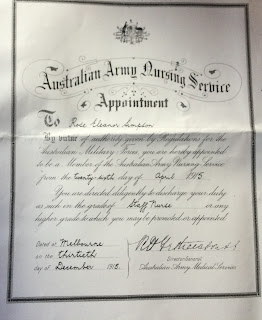 Australian Army Nursing Service
Appointment
To Rose Eleanor
By virtue of authority given by Regulations for the
Australian Military Forces, you are hereby appointed
to be a Member of the Australian Army Nursing Service
from the twenty sixth day of April 1915.
You are directed diligently to discharge your duty
as such in the grade of Staff Nurse or in any
higher grade to which you may be promoted or appointed
Dated at Melbourne
on the Thirtieth
day of December 1915.
Director General
Australian Army Medical Service